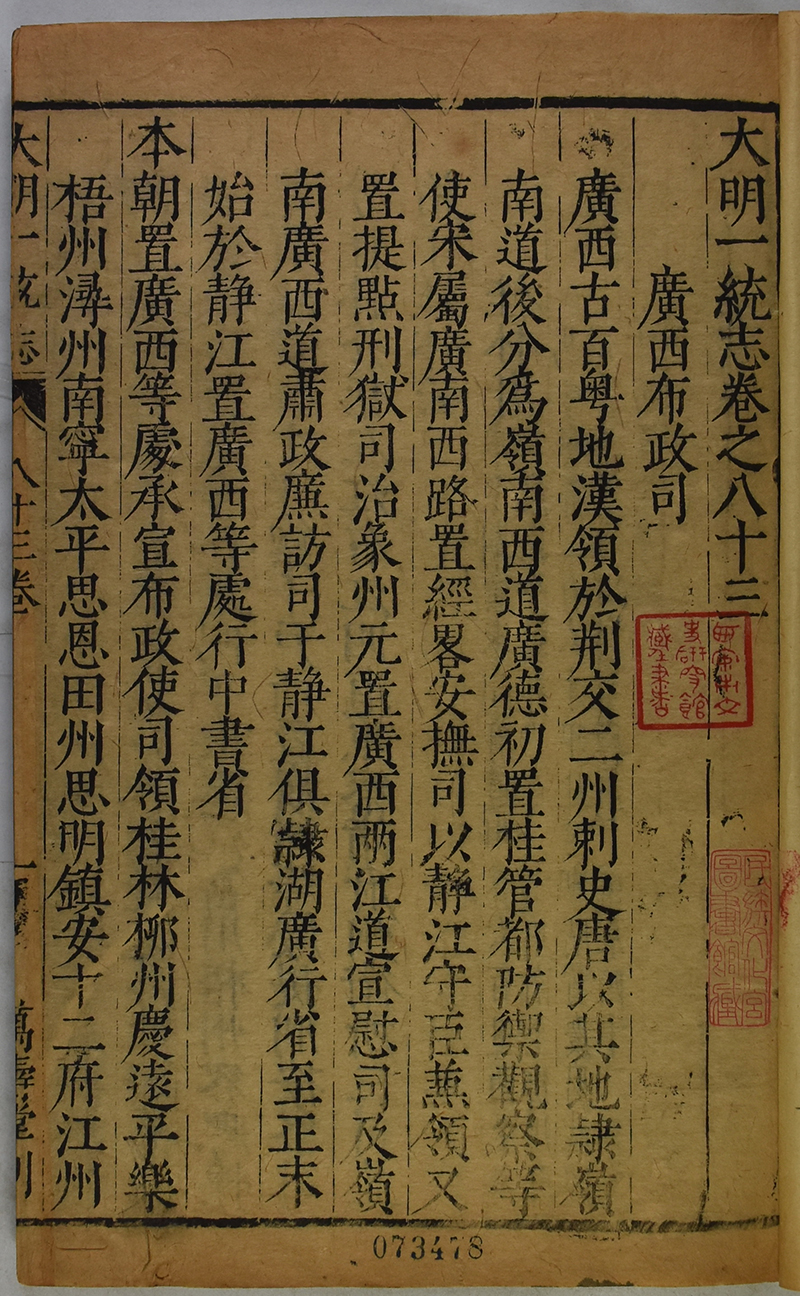 大明一統志卷之八十三
廣西布政司
廣西古百粤地漢領於荆交二州刺史唐以其地隷嶺
南道後分爲嶺南西道廣德初置桂管都防禦觀察等
使宋屬廣南西路置經畧安撫司以靜江守臣兼領又
置提點刑獄司治象州元置廣西兩江道宣慰司及嶺
南廣西道肅政廉訪司于静江俱隸湖廣行省至正末
始於静江置廣西等處行中書省
本朝置廣西等處承宣布政使司領桂林桞州慶遠平樂
梧州潯州南寧太平思恩田州思明鎮安十二府江州
大明一統志 八十三卷 一 萬壽堂刊
073478